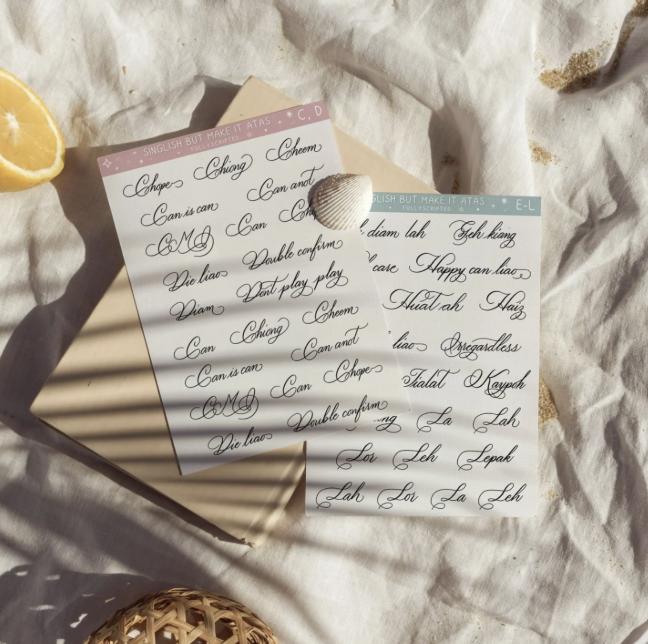 SINGLISH BUT MAKE IT ATAS C, D
FULLYSCRIPTED
Chope Chiong Cheem
Can is can Can anot
CMI Can
Die liao Double confirm
Diam Dont play play
Can Chiong Cheem
Can is can Can anot
CMI Can Chope
Die liao Double confirm
GLISH BUT MAKE IT ATAS E-L
FULLYSCRIPTED
diam lah Geh kiang
care Happy can liao
Huat ah Haiz
liao Irregardless
Jialat Kaypoh
La Lah
Lor Leh Lepak
Lah Lor La Leh